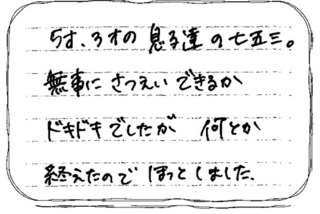 5才、3才の息子達の七五三。
無事にさつえいできるか
ドキドキでしたが 何とか
終えたので ほっとしました。